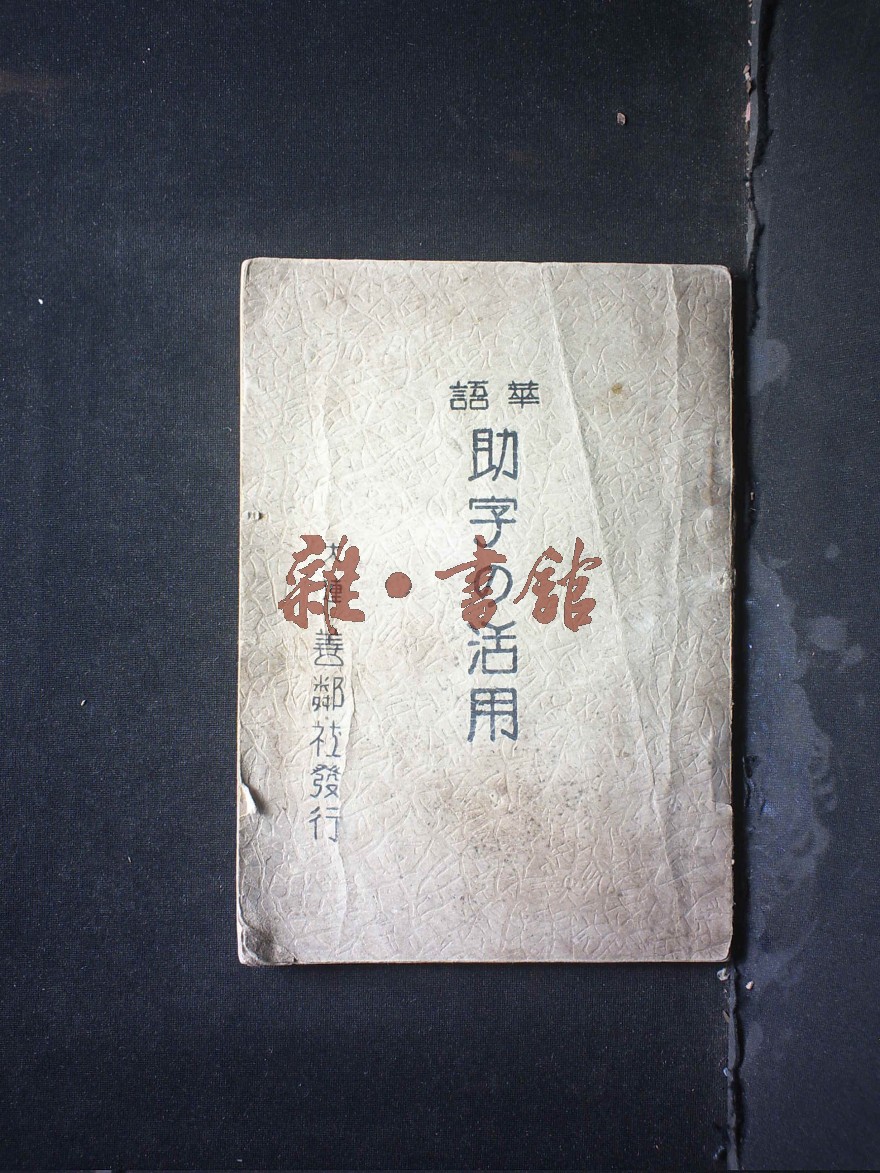 華語
助字の活用
大連善鄰社發行
雜·書館